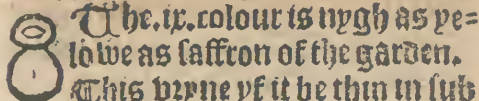 The.ix.colour is nygh as ye=
lowe as saffron of the garden.
This vryne yf it be thin in sub